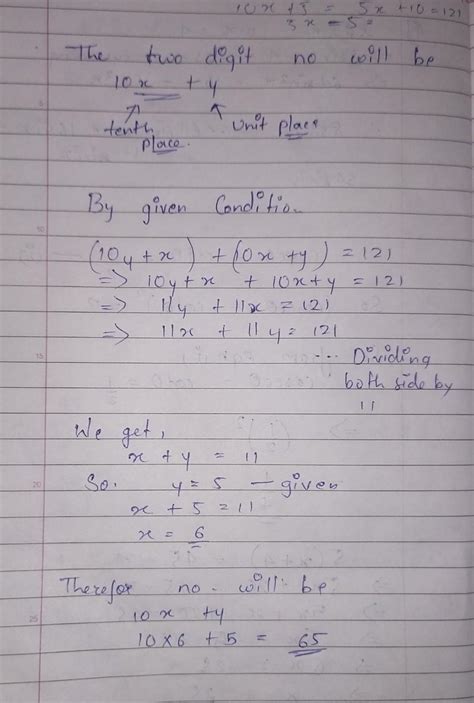 10x + 5 = 5x + 10 = 121
3x = 5 =
The two digit no will be
10x + y
tenth place.
Unit place
By given Conditio.
(10y + x) + (10x + y) = 121
=> 10y + x + 10x + y = 121
=> 11y + 11x = 121
=> 11x + 11y = 121
... Dividing
both side by
11
We get,
x + y = 11
So. y = 5 — given
x + 5 = 11
x = 6
Therefor no. will be
10x + y
10 × 6 + 5 = 65